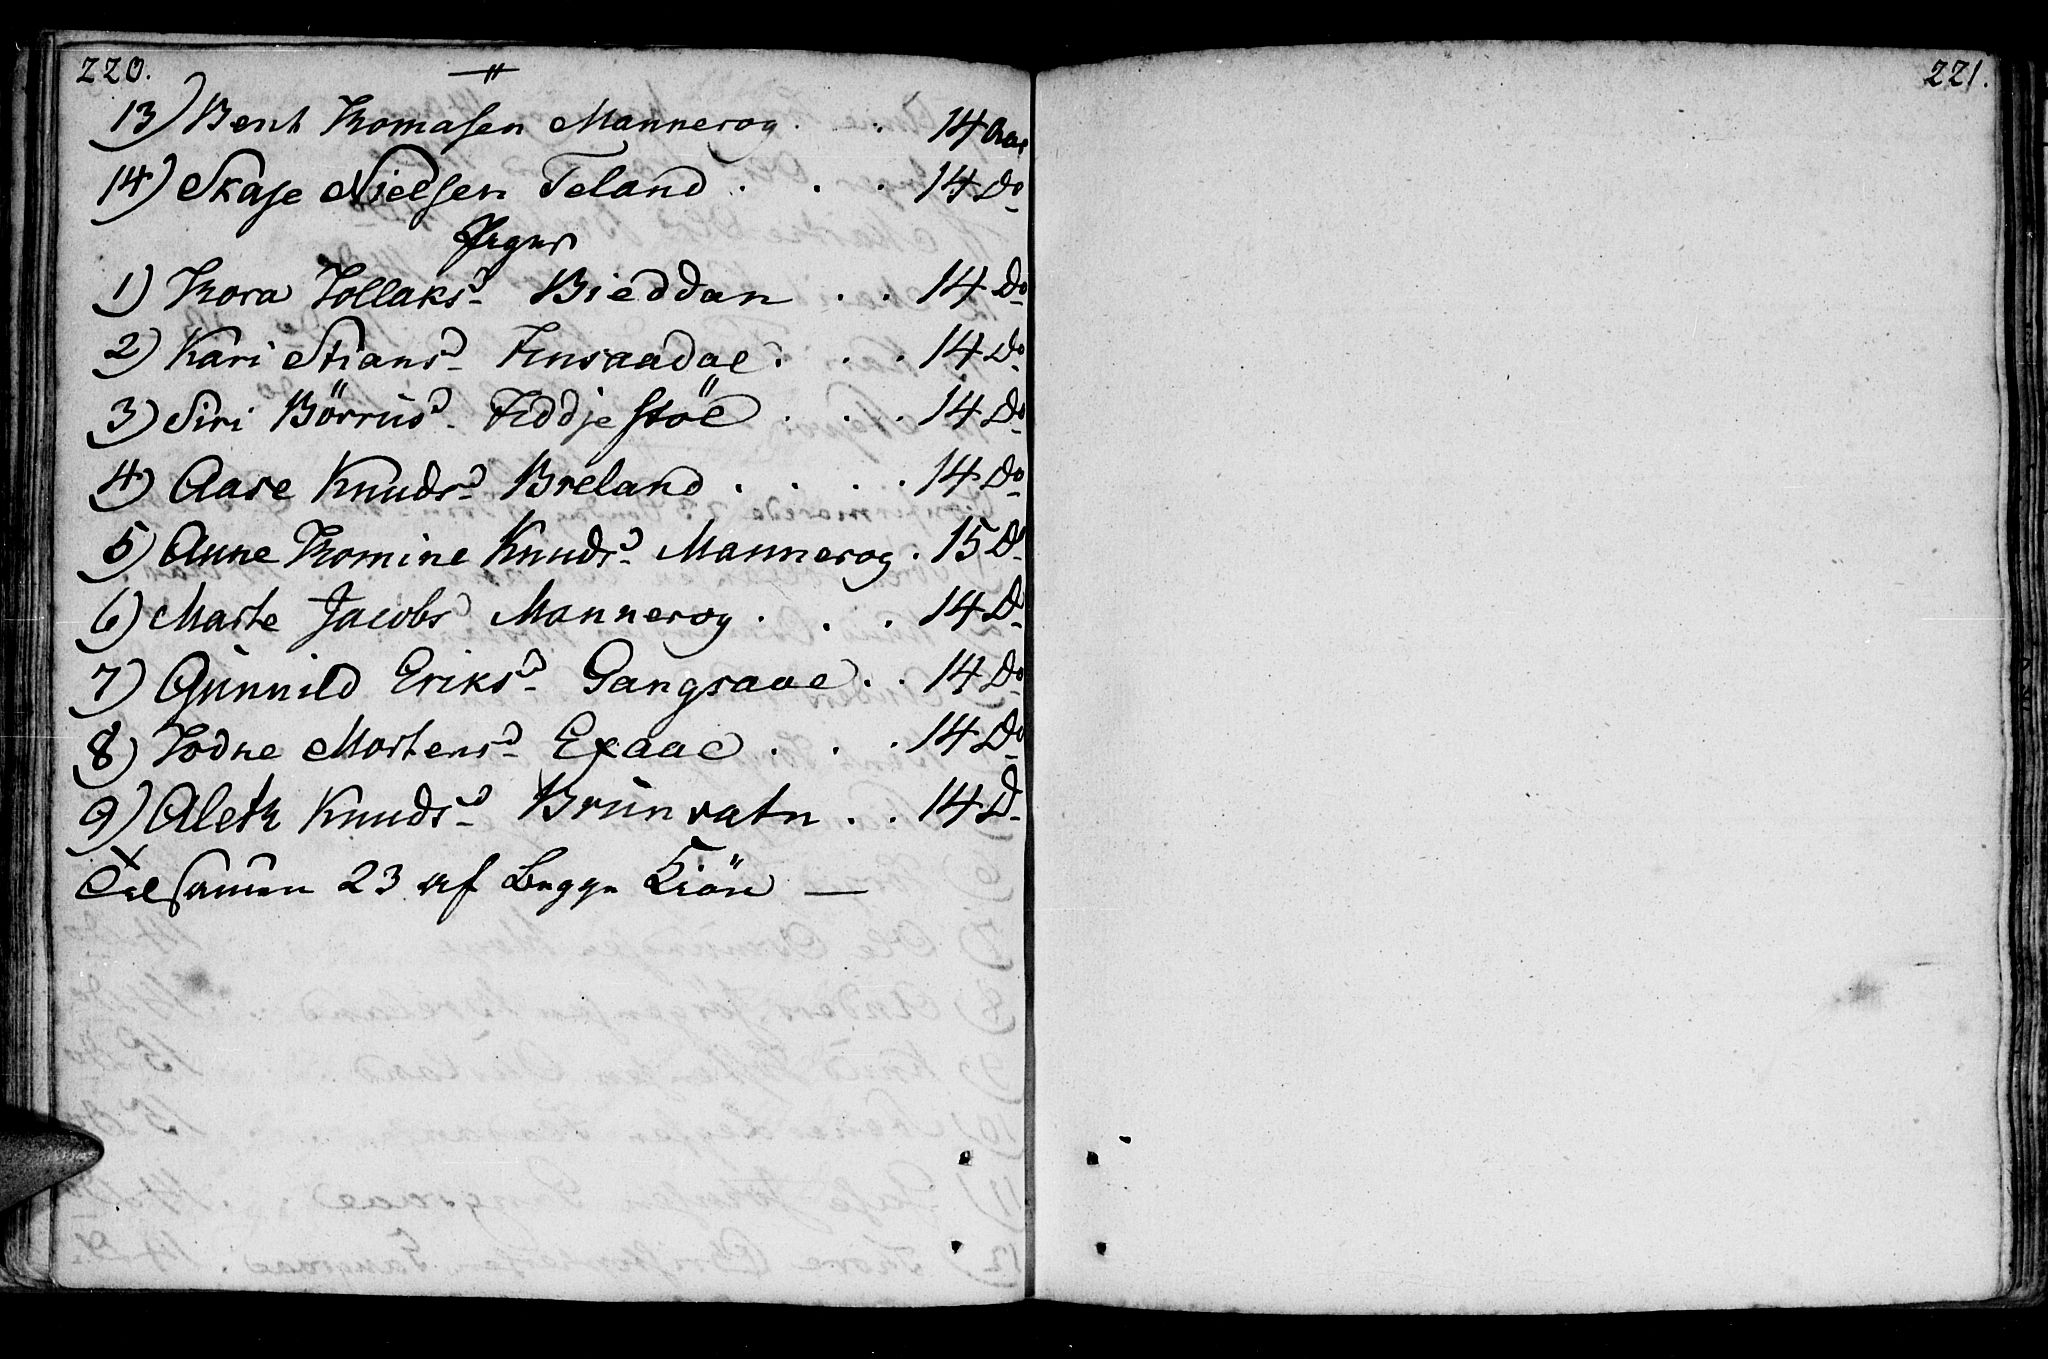 220.
13) Bent Thomasen Mannerog . . 14 Aar
14) Skaje Nielsen Teland . . . 14 Do
Piger
1) Thora Tollaksd Bieddan . . 14 Do
2) Kari Stiansd . . . 14 Do
3) Siri Börrüsd Fiddjestöl . . . 14 Do
4) Aase Knudsd Breland . . . . 14 Do
5) Anne Thomine Knudsd Mannerog . 15 D
6) Marte Jacobsd Mannerog . . . 14 D
7) Günnild Eriksd Gangsaae . . 14 Do
8) Todne Mortensd Exaae . . . 14 Do
9) Aleth Knudsd Brünvatn . . 14 D
Tilsamen 23 af begge Kiön —
221.